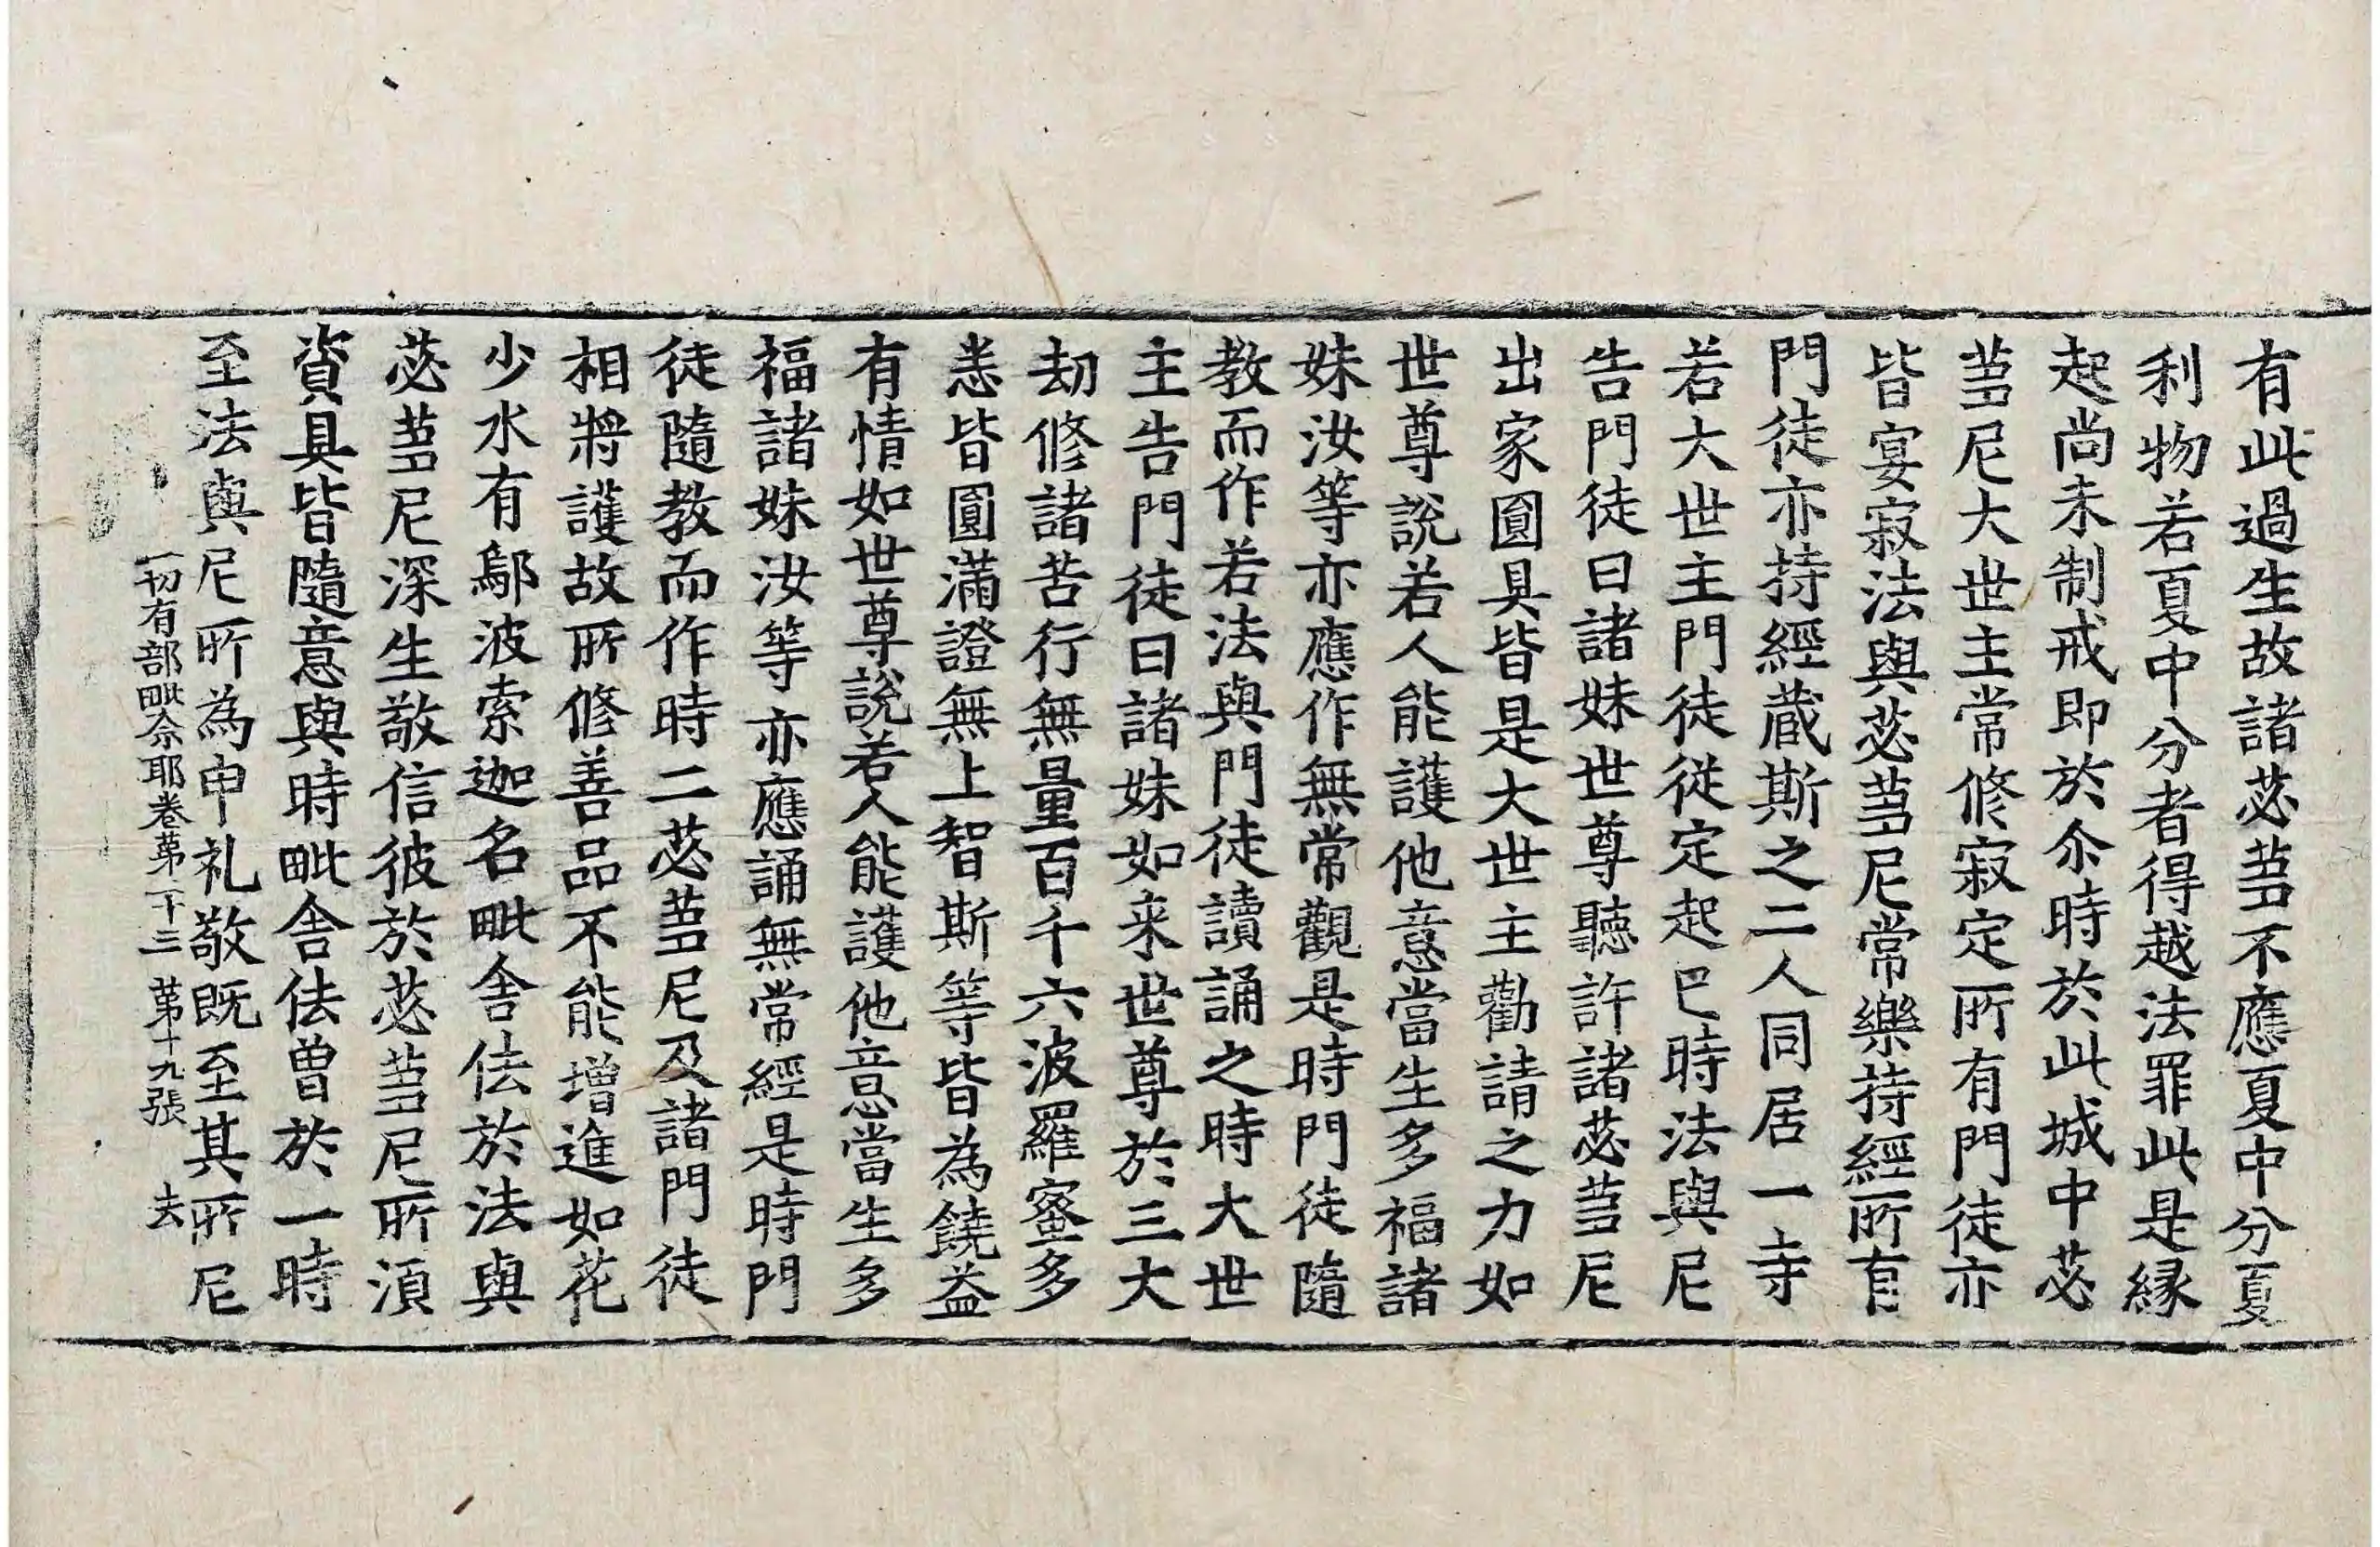 有此過生故諸苾芻不應夏中分夏
利物若夏中分者得越法罪此是縁
起尚未制戒即於尒時於此城中苾
芻尼大世主常修寂定所有門徒亦
皆宴寂法與苾芻尼常樂持經所有
門徒亦持經蔵斯之二人同居一寺
若大世主門徒從定起已時法與尼
告門徒曰諸妹世尊聽許諸苾芻尼
出家圓具皆是大世主勸請之力如
世尊說若人能護他意當生多福諸
妹汝等亦應作無常觀是時門徒隨
教而作若法與門徒讀誦之時大世
主告門徒曰諸妹如来世尊於三大
劫修諸苦行無量百千六波羅蜜多
悉皆圓滿證無上智斯等皆為饒益
有情如世尊說若人能護他意當生多
福諸妹汝等亦應誦無常經是時門
徒隨教而作時二苾芻尼及諸門徒
相將護故所修善品不能增進如花
少水有鄔波索迦名毗舍佉於法與
苾芻尼深生敬信彼於苾芻尼所湏
資具皆隨意與時毗舍佉曾於一時
至法與尼所為申礼敬既至其所尼
一切有部毗奈耶卷苐二十三 苐十九張 去